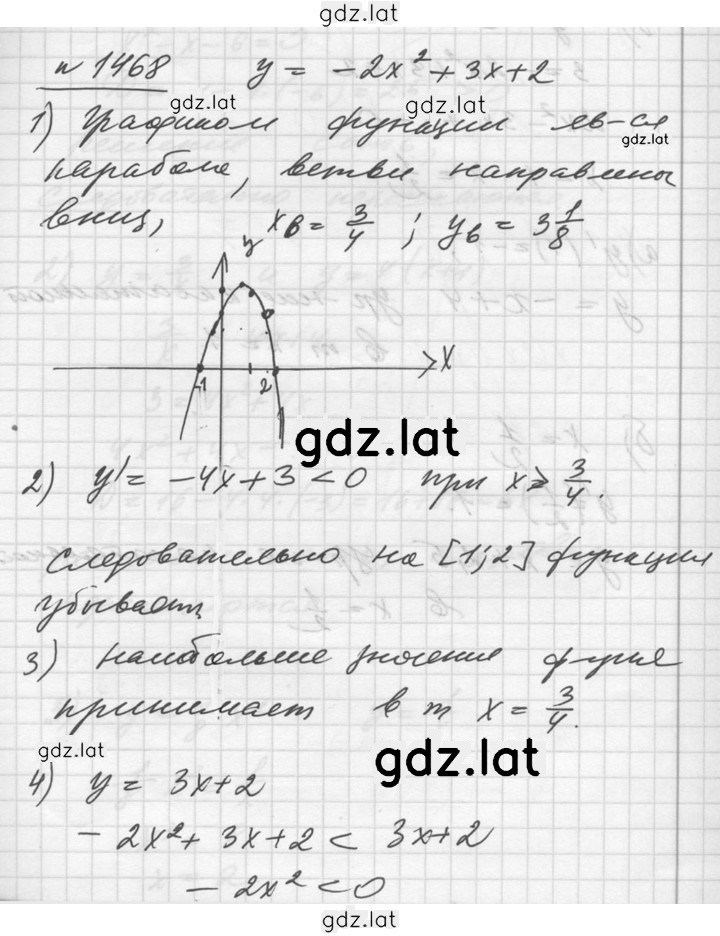 gdz.lat
n 1468 y = -2x² + 3x + 2
gdz.lat gdz.lat
1) Графиком функции яв-ся
gdz.lat
парабола, ветви направлены
вниз, xв = 3/4 ; yв = 3 1/8
y
x
-1 2
gdz.lat
2) y' = -4x + 3 < 0 при x ≥ 3/4.
Следовательно на [1; 2] функция
убывает
3) наибольшее значение ф-ция
принимает в т x = 3/4.
gdz.lat gdz.lat
4) y = 3x + 2
-2x² + 3x + 2 < 3x + 2
-2x² < 0
gdz.lat